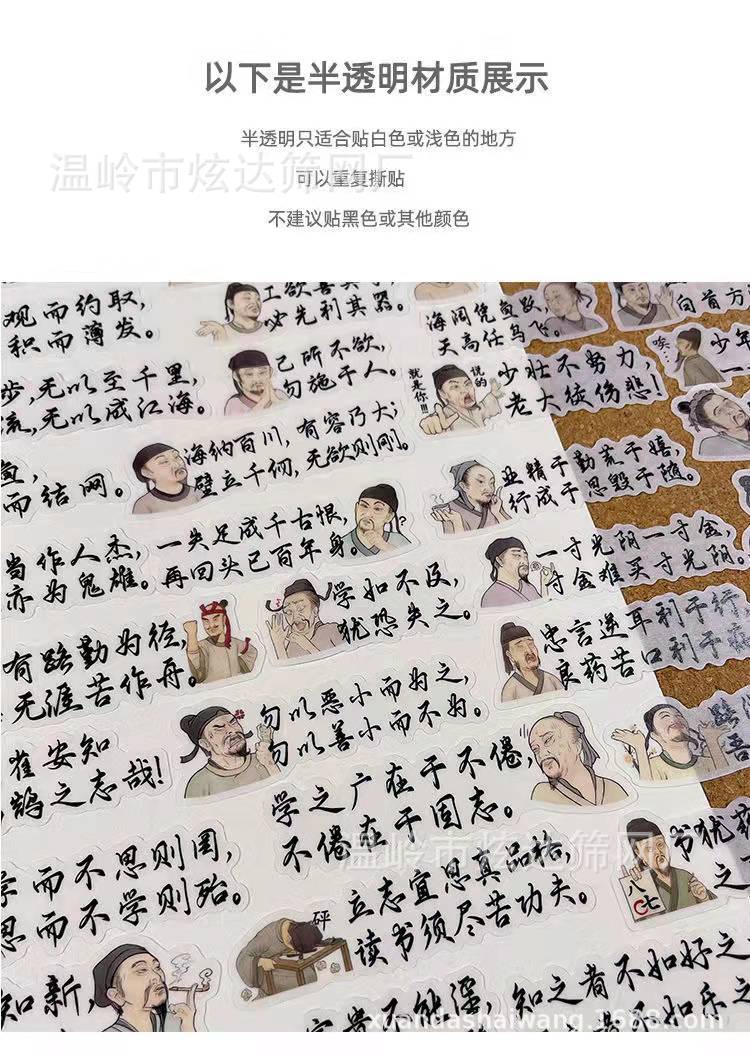 以下是半透明材质展示
半透明只适合贴白色或浅色的地方
温岭市炫达筛网厂
可以重复撕贴
不建议贴黑色或其他颜色
观而约取，
积而薄发。
工欲善其事，
必先利其器。
海阔凭鱼跃，
天高任鸟飞。
向首方
步，无以至千里，
流，无以成江海。
己所不欲，
勿施于人。
说的
就是你!!!
少壮不努力，
老大徒伤悲！
唉...
少年
一
而结网。
海纳百川，有容乃大；
壁立千仞，无欲则刚。
业精于勤荒于嬉，
行成于思毁于随。
当作人杰，
亦为鬼雄。
一失足成千古恨，
再回头已百年身。
?
一寸光阴一寸金，
寸金难买寸光阴。
有路勤为径，
无涯苦作舟。
学如不及，
犹恐失之。
忠言逆耳利于行
良药苦口利于病
雀安知
鹄之志哉！
勿以恶小而为之，
勿以善小而不为。
路
吾
学之广在于不倦，
不倦在于固志。
温岭市炫达筛网
学而不思则罔，
思而不学则殆。
砰
立志宜思真品格，
读书须尽苦功夫。
八
七
书犹药
之
知新，
富贵不能淫，
知之者不如好之
者不如乐之
xuandashaiwang.1688.com